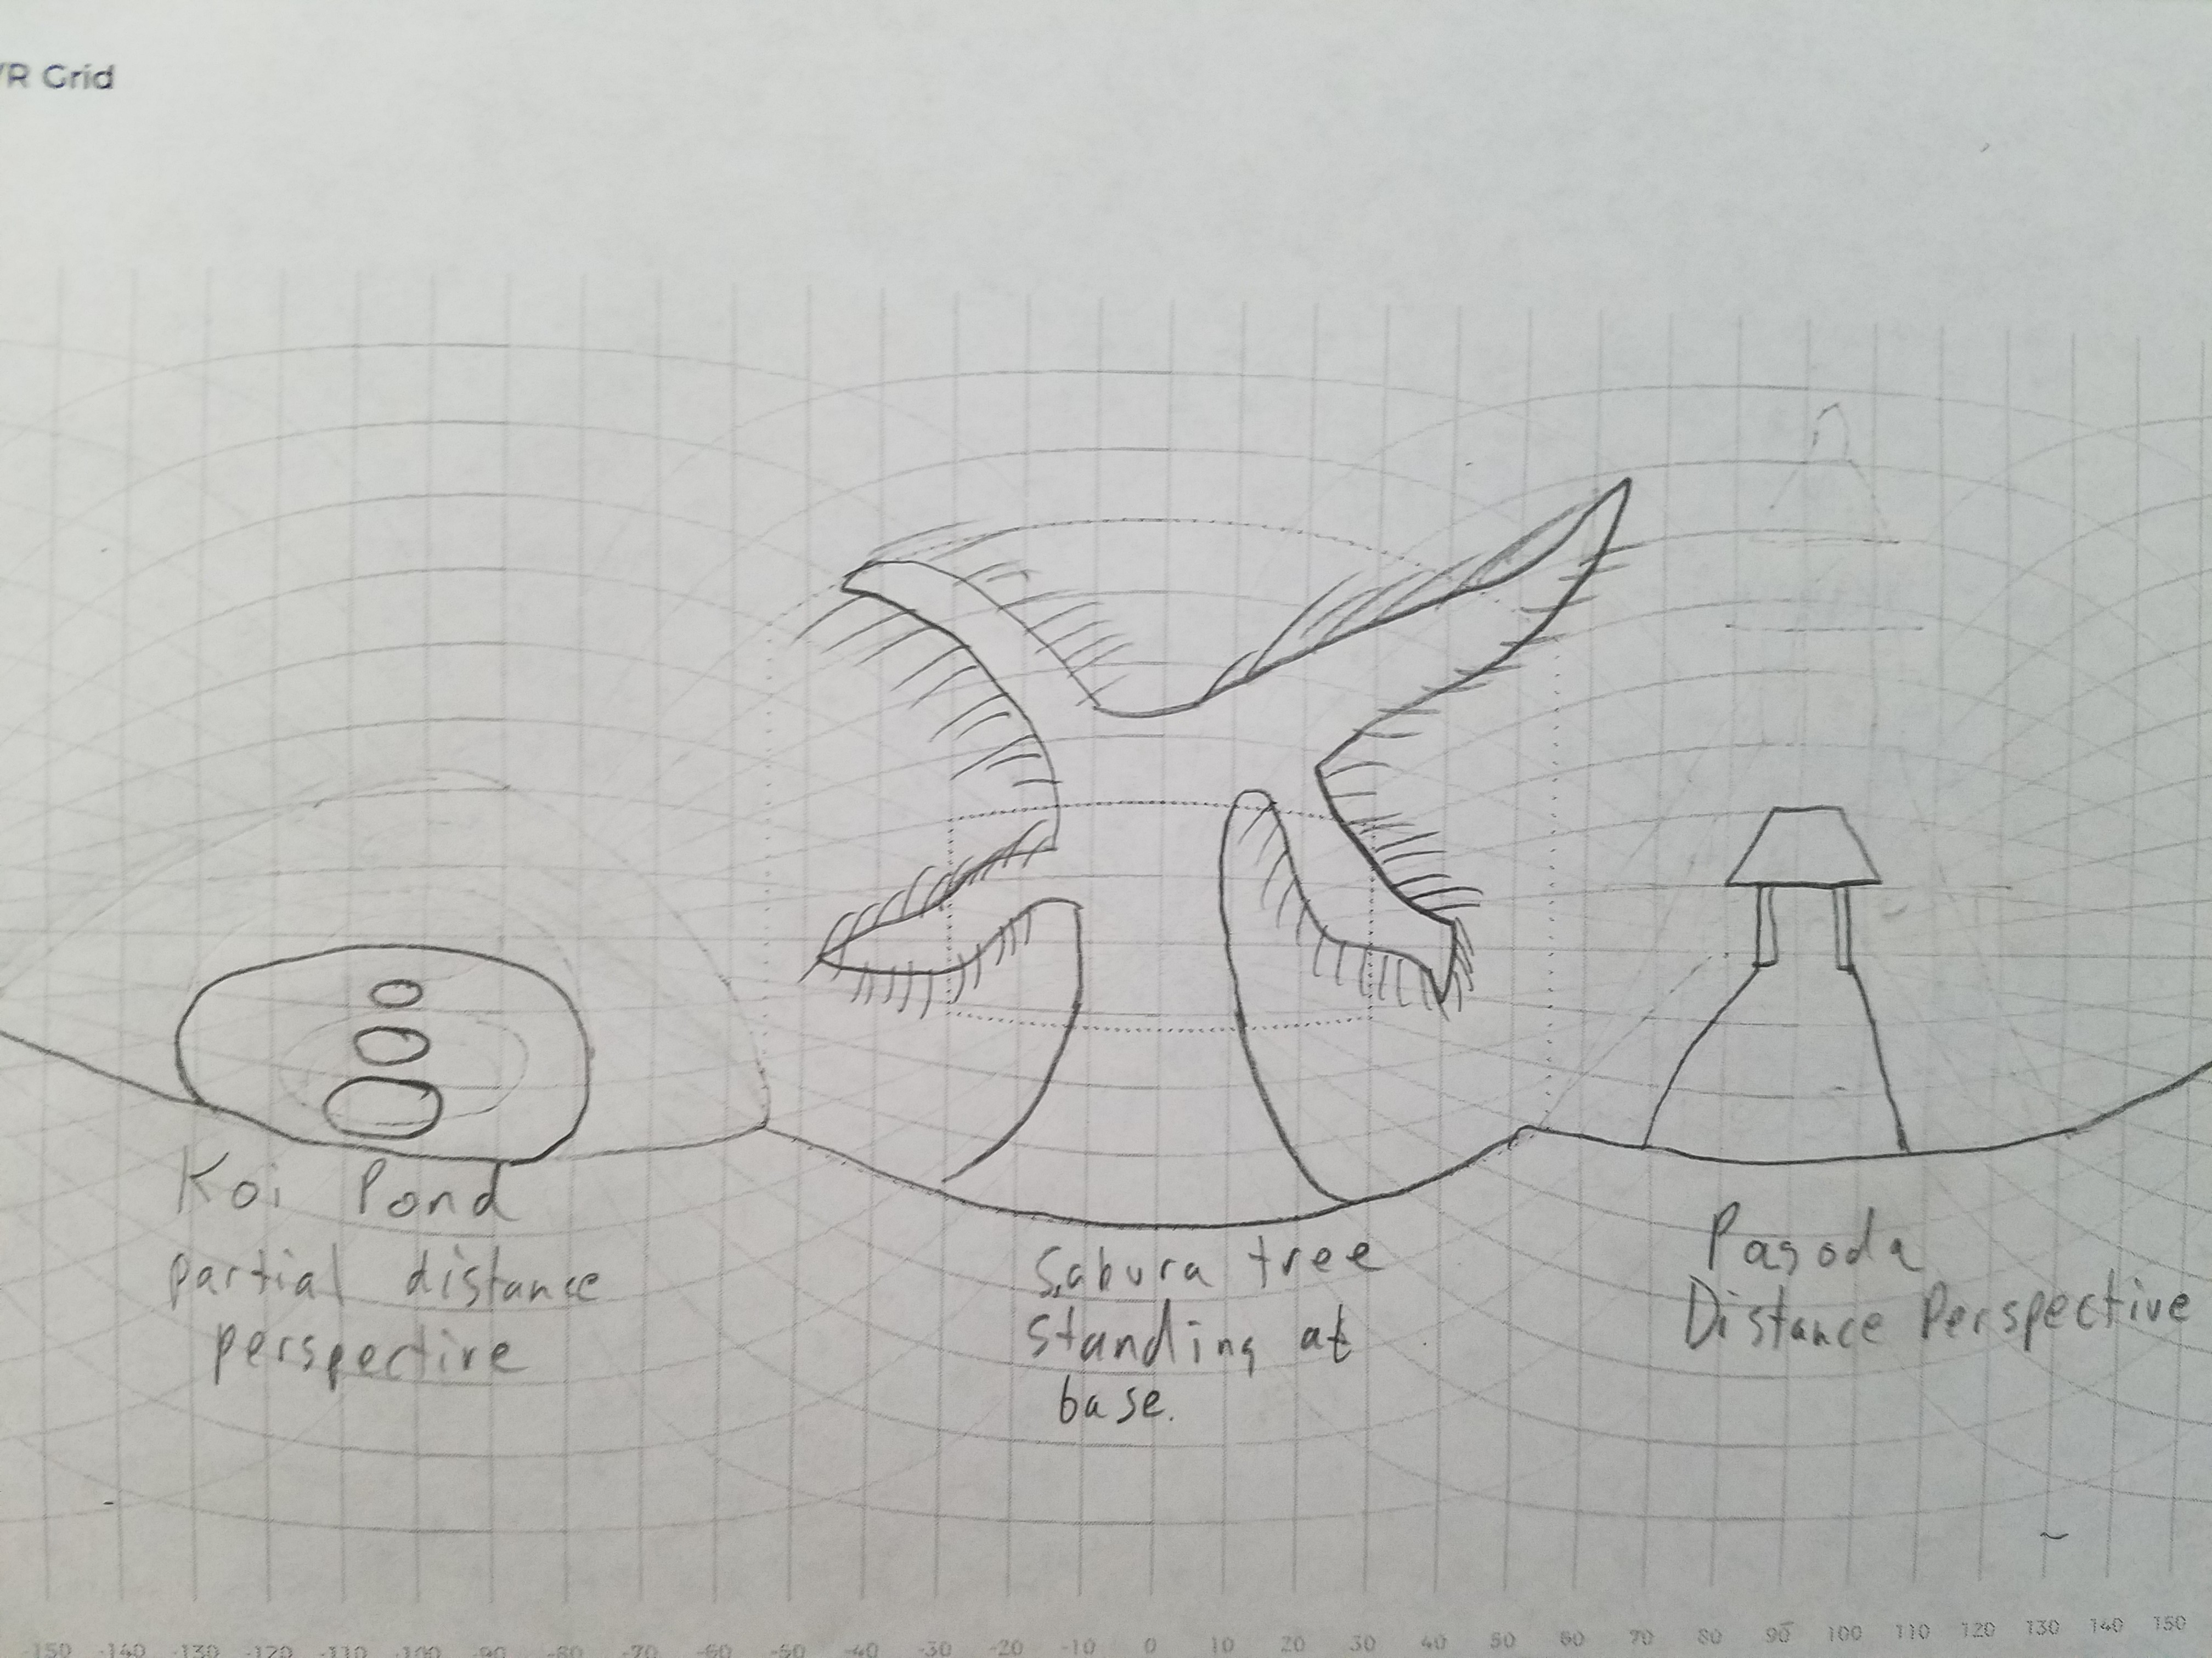 VR Grid
Koi Pond
partial distance
perspective
Sabura tree
Standing at
base.
Pagoda
Distance Perspective
-150 -140 -130 -120 -110 -100 -90 -80 -70 -60 -50 -40 -30 -20 -10 0 10 20 30 40 50 60 70 80 90 100 110 120 130 140 150